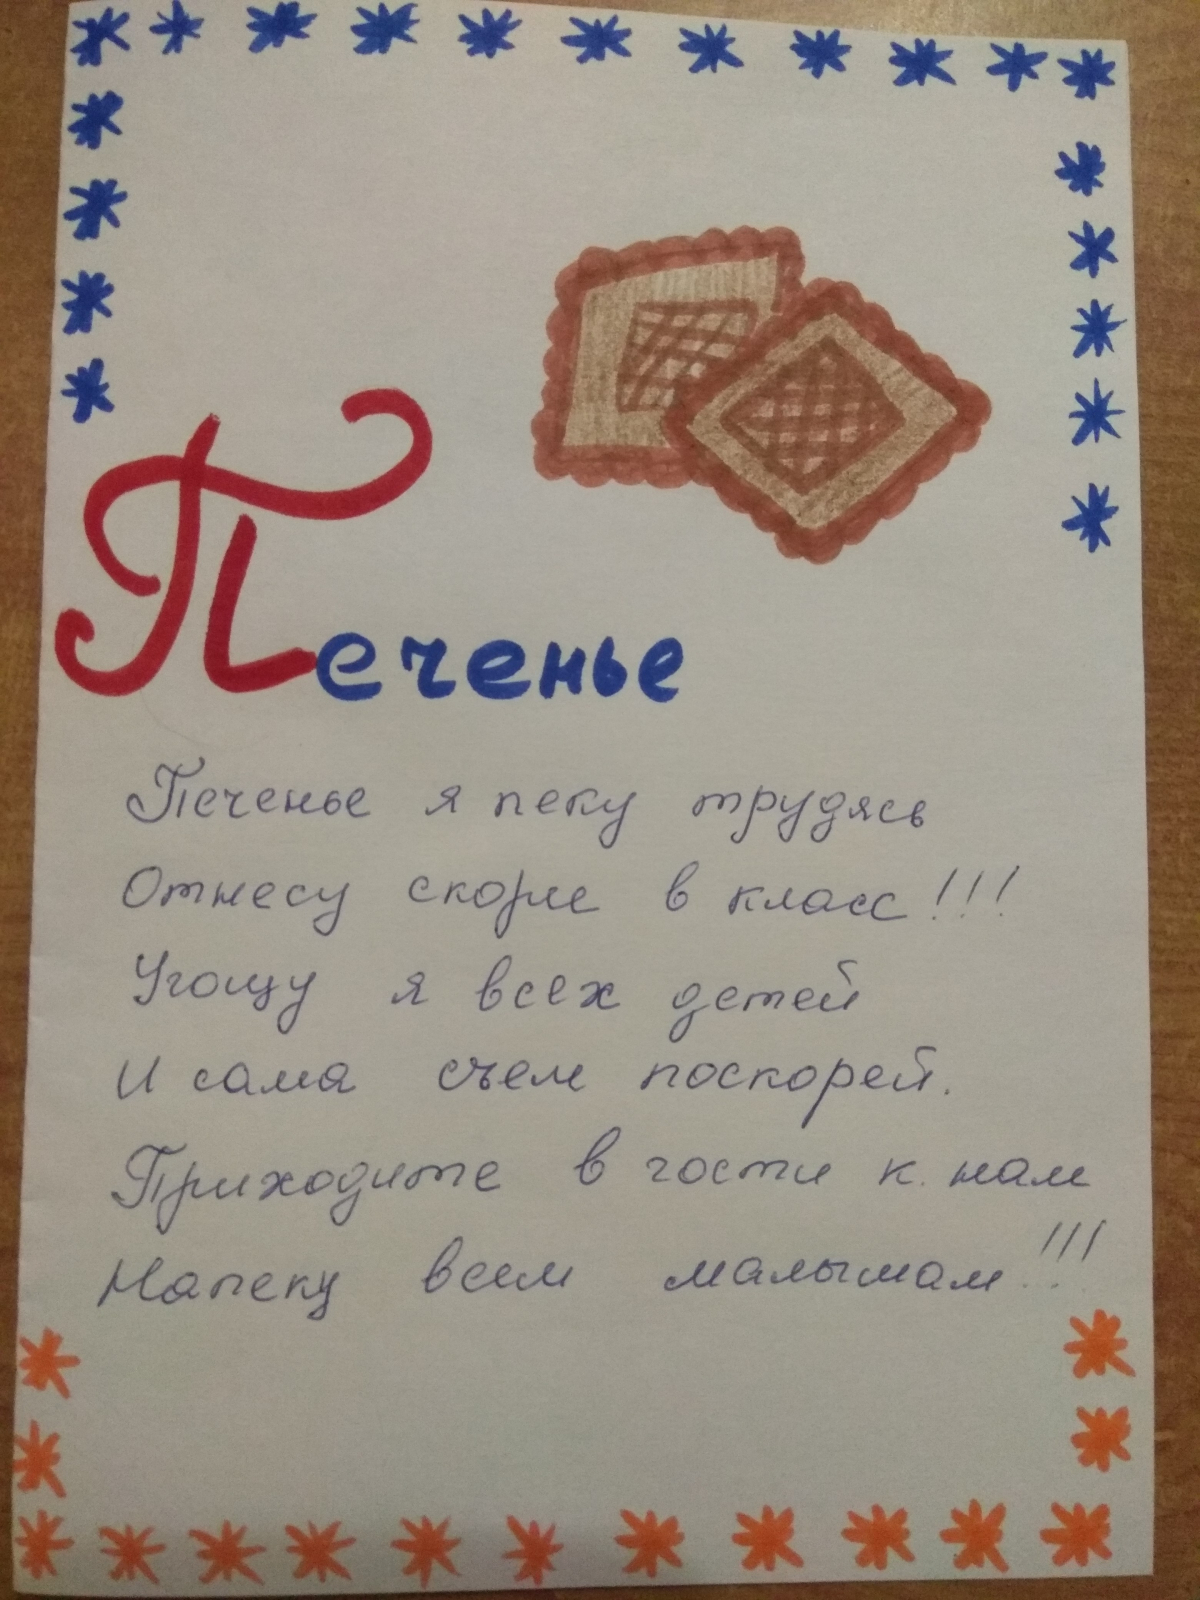 Печенье
Печенье я пеку трудясь
Отнесу скорее в класс!!!
Угощу я всех детей
И сама съем поскорей.
Приходите в гости к нам
Напеку всем малышам!!!